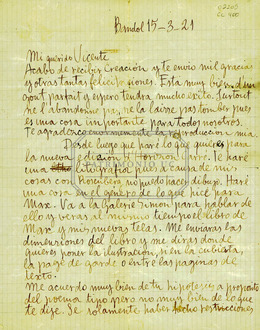 Bandol 15-3-21
Mi querido Vicente
Acabo de recibir Creación y te envio mil gracias
y otras tantas felicitaciones. Esta muy bien
sont parfait y espero tendra mucho exito. Surtout
ne l'abandonne pas, ne la laisse pas tomber pues
es una cosa importante para todos nosotros.
Te agradezco enormemente la reproduccion mia.
Desde luego que haré lo que quieres para
la nueva edicion d'Horizon Carré. Te haré
una litografia pues a causa de mis
cosas con Rosenberg no puedo hacer dibujo. Haré
una cosa en el genero de lo que hice para
Max. Va a la Galerie Simon para hablar de
ello y veras al mismo tiempo el libro de
Max y mis nuevas telas. Me enviaras las
dimensiones del libro y me diras donde
quieres poner la ilustracion, si en la cubierta,
la page de garde o entre las paginas de
texto.
Me acuerdo muy bien de tu hipotesis a proposito
del poema tipo pero no muy bien de lo que
te dije. Se solamente haber hecho restricciones